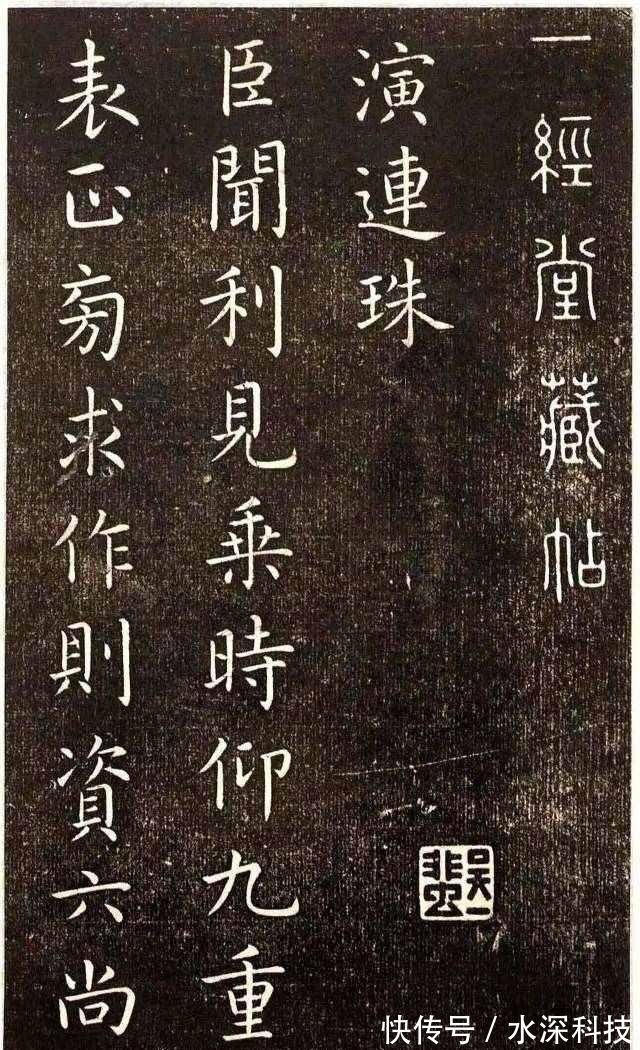 一經堂藏帖
演連珠
臣聞利見乗時仰九重
表正匃求作則資六尚
吴一蜚
快传号 / 水深科技